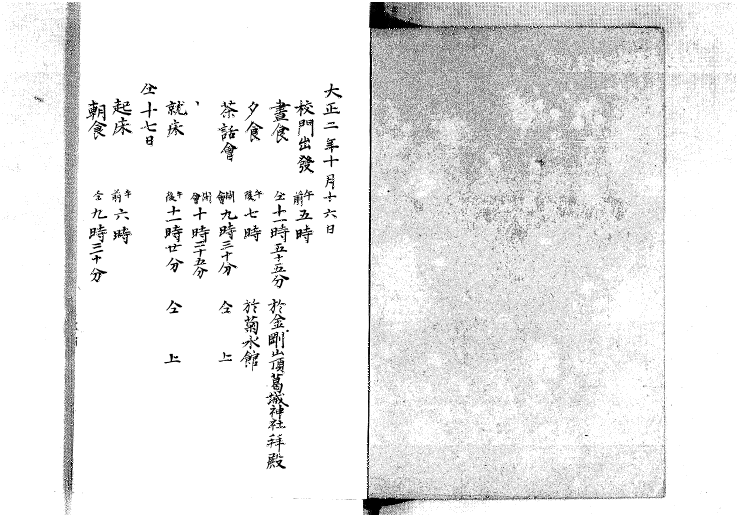 大正二年十月十六日
校門出發 午前五時
晝食 仝十一時五十五分 於金剛山頂葛城神社拜殿
夕食 午後七時 於菊水館
茶話會 開會九時三十分 仝上
、 閉會十時二十五分
就床 午後十一時廿分 仝上
仝十七日
起床 午前六時
朝食 仝九時三十分